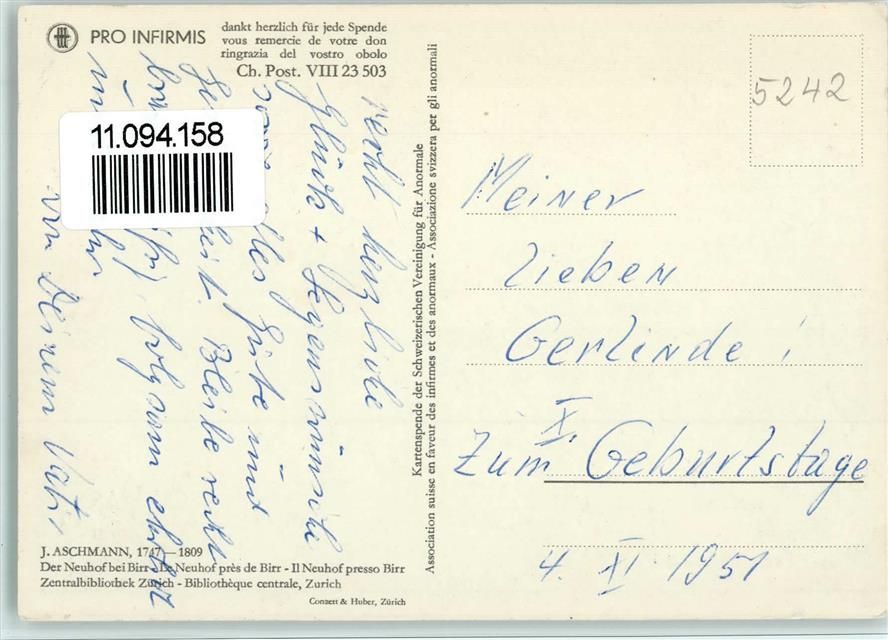 PRO INFIRMIS
dankt herzlich für jede Spende
vous remercie de votre don
ringrazia del vostro obolo
Ch. Post. VIII 23 503
11.094.158
recht herzliche
Glück + Segenswünsche
alles Gute und
Bleibe recht
von Deinem Vati
J. ASCHMANN, 1747—1809
Der Neuhof bei Birr - Le Neuhof près de Birr - Il Neuhof presso Birr
Zentralbibliothek Zürich - Bibliothèque centrale, Zurich
Conzett & Huber, Zürich
Kartenspende der Schweizerischen Vereinigung für Anormale
Association suisse en faveur des infirmes et des anormaux - Associazione svizzera per gli anormali
5242
Meiner
lieben
Gerlinde !
X.
Zum Geburtstage
4. XI. 1951